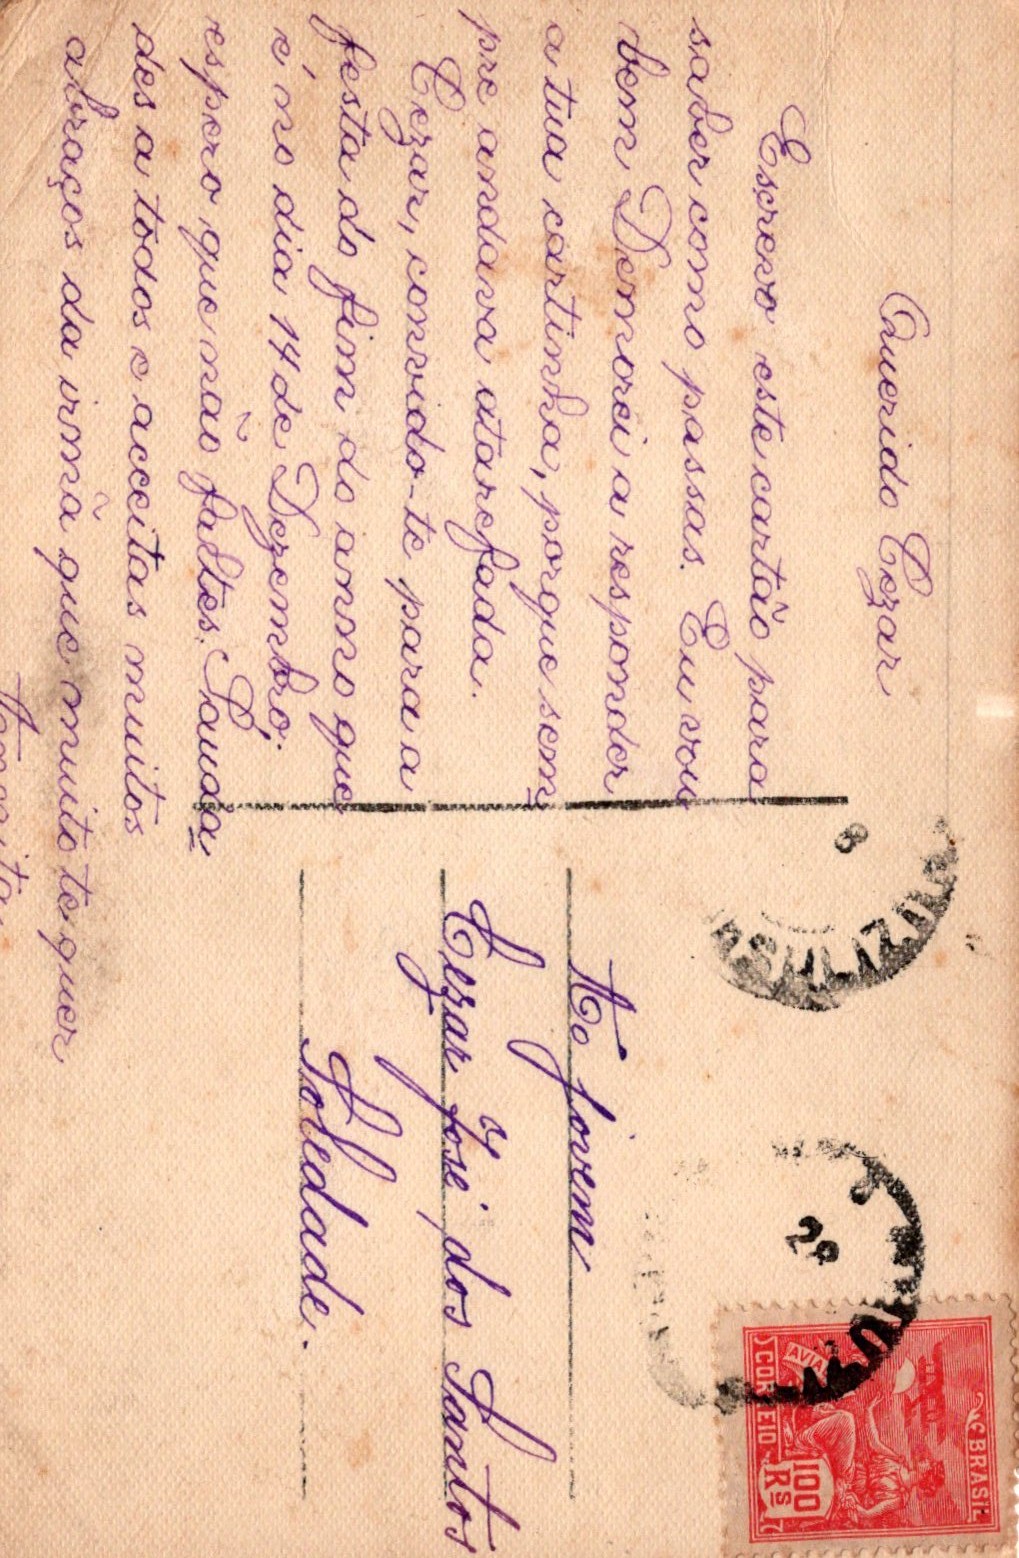 Querido Cezar
Escrevo este cartão para
saber como passas. Eu vou
bem Demorei a responder
a tua cartinha, porque sem
pre andava atarefada.
Cezar, convido-te para a
festa do fim do anno que
é no dia 14 de Dezembro.
espero que não faltes. Sauda
des a todos e acceitas muitos
abraços da irmã que muito te quer
Ao jovem
Cezar José dos Santos
Soledade.
BRASIL
AVIA
CORREIO
100
Rs
8
29